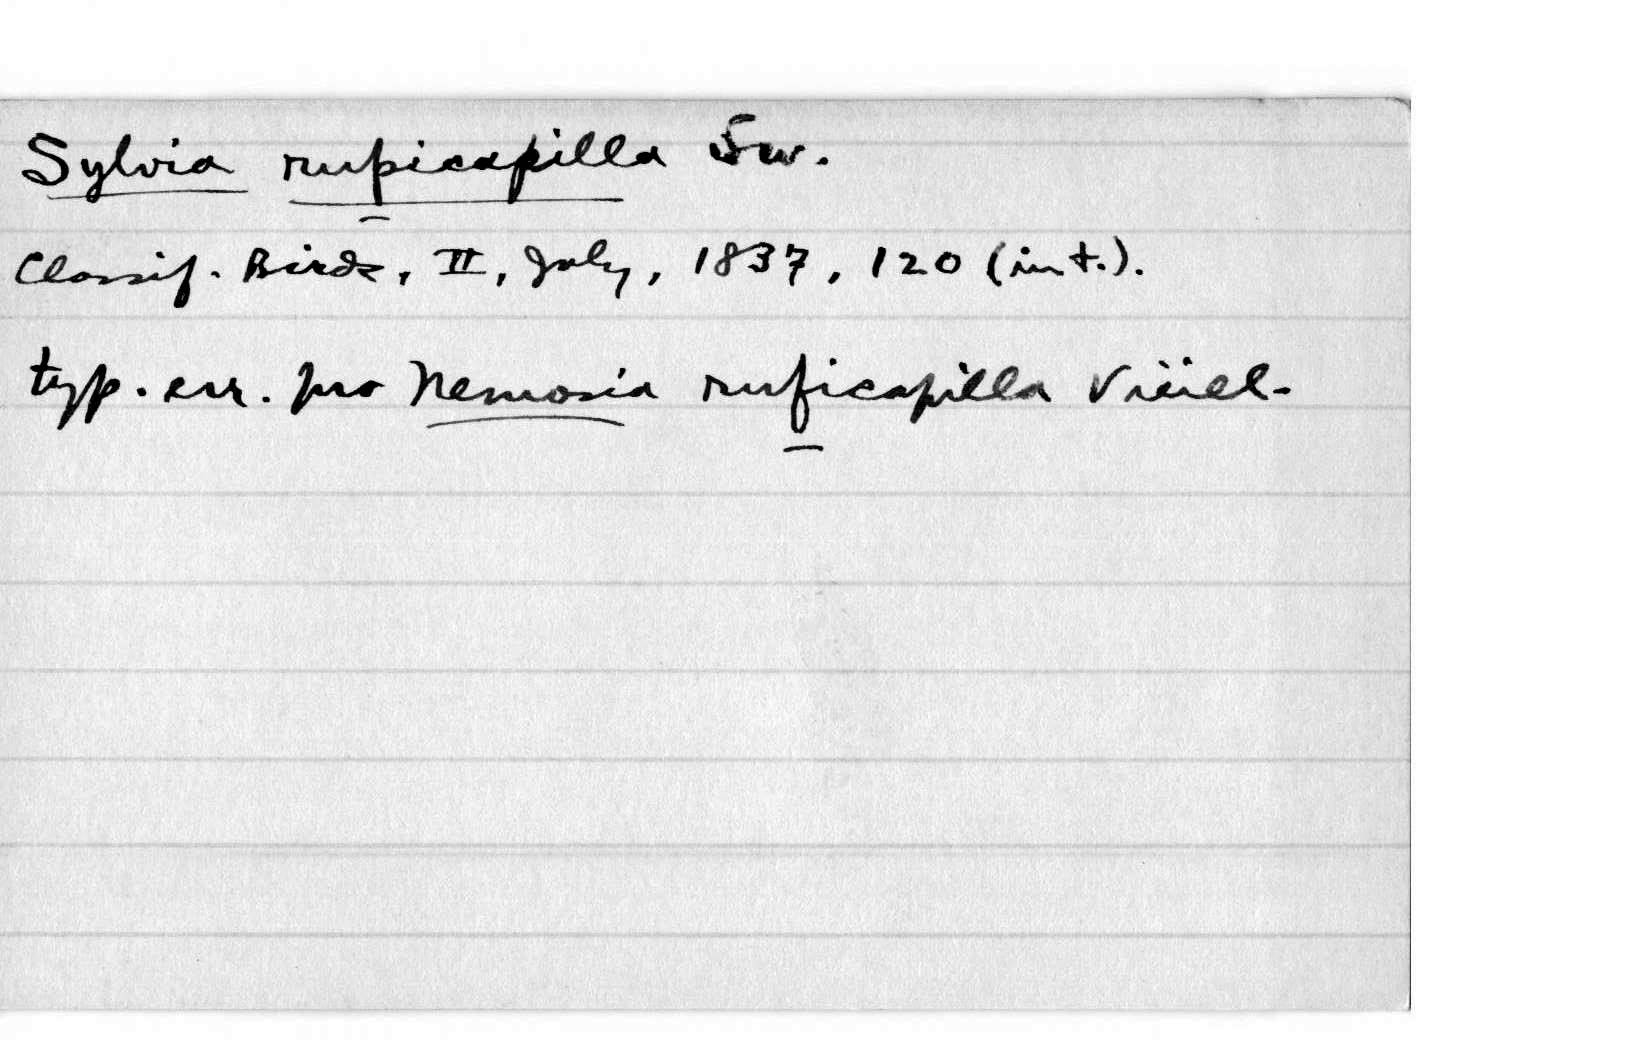 Sylvia rupicapilla Sw.
Classif. Birds, II, July, 1837, 120 (int.).
typ. err. pro Nemosia ruficapilla Vieill.